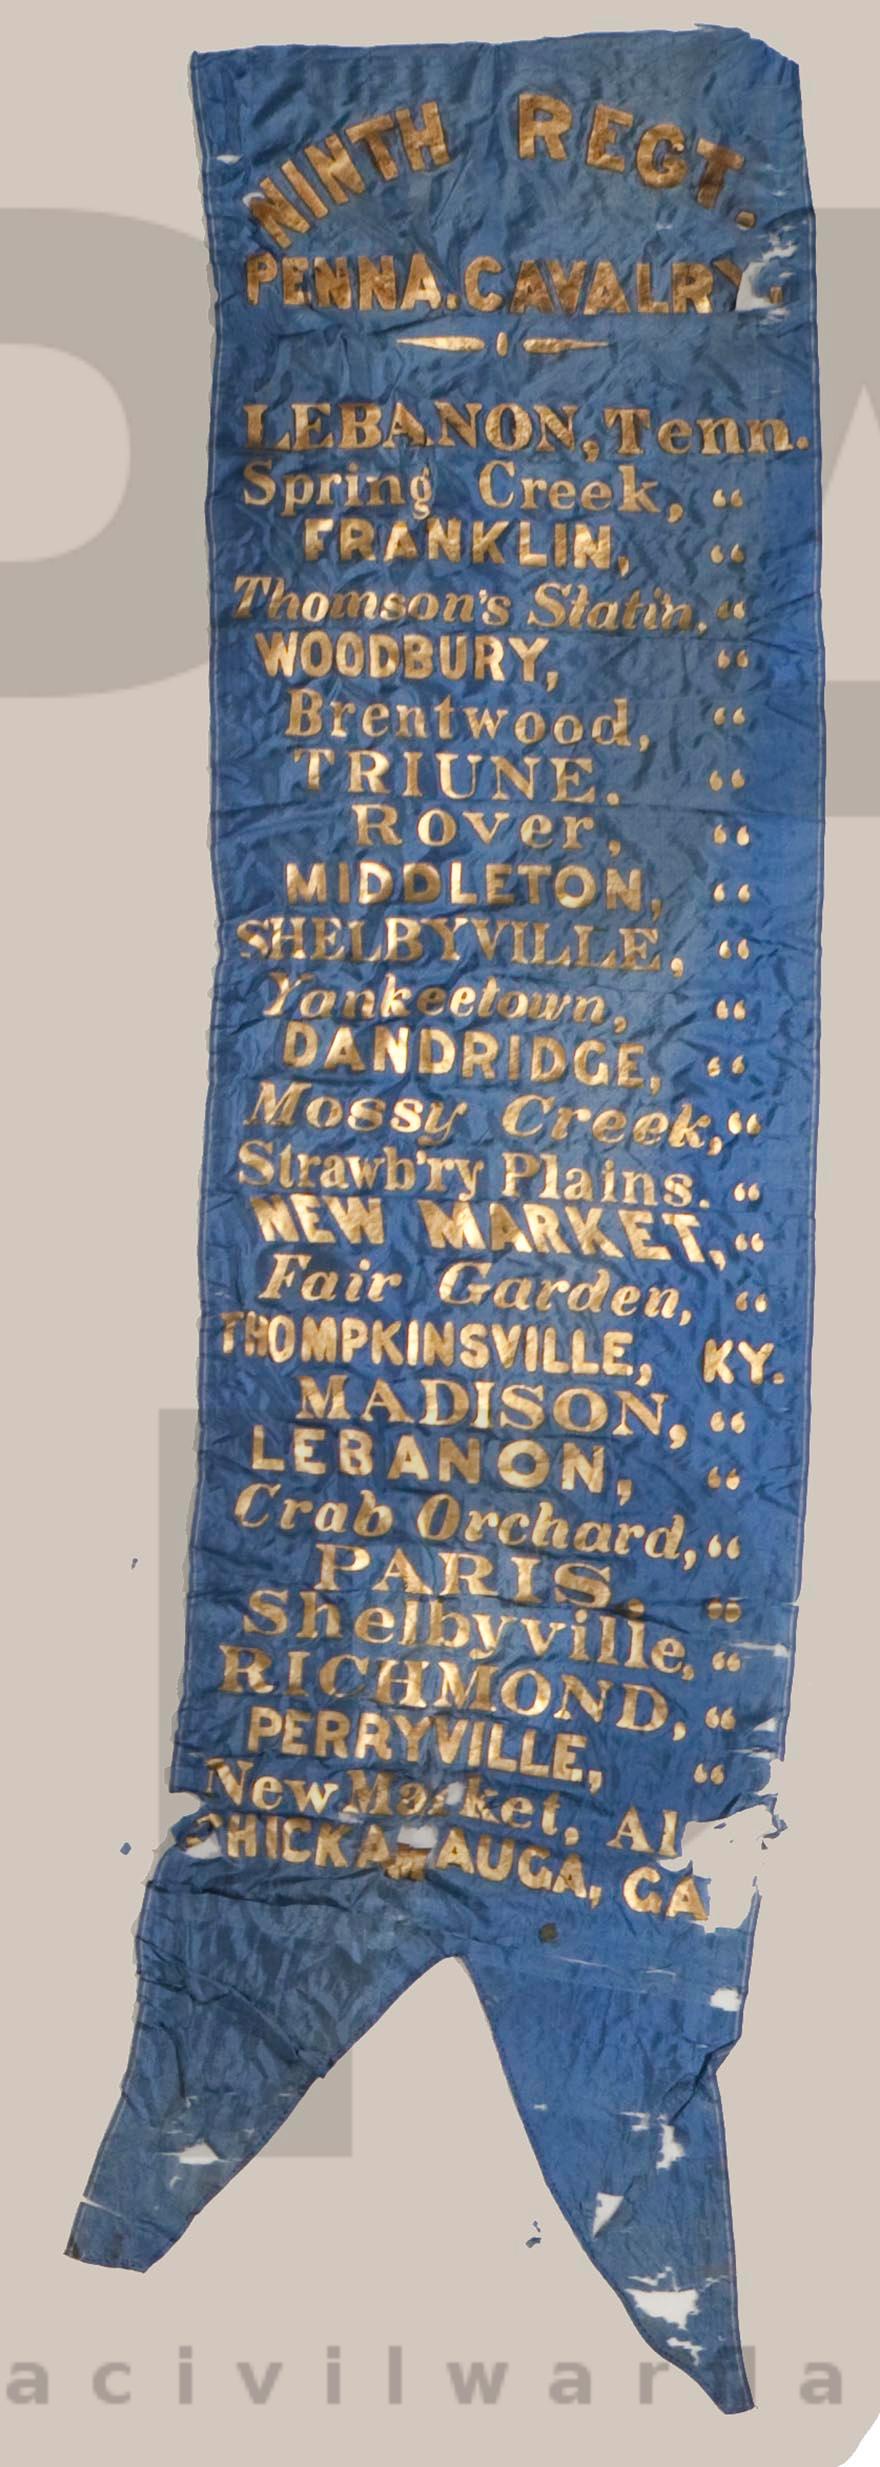 NINTH REGT.
PENNA. CAVALRY.
LEBANON, Tenn.
Spring Creek, "
FRANKLIN, "
Thomson's Statin, "
WOODBURY, "
Brentwood, "
TRIUNE. "
Rover, "
MIDDLETON, "
SHELBYVILLE, "
Yankeetown, "
DANDRIDGE, "
Mossy Creek, "
Strawb'ry Plains. "
NEW MARKET, "
Fair Garden, "
THOMPKINSVILLE, KY.
MADISON, "
LEBANON, "
Crab Orchard, "
PARIS. "
Shelbyville, "
RICHMOND, "
PERRYVILLE, "
New Market, Al
CHICKAMAUGA, GA
acivilwar a